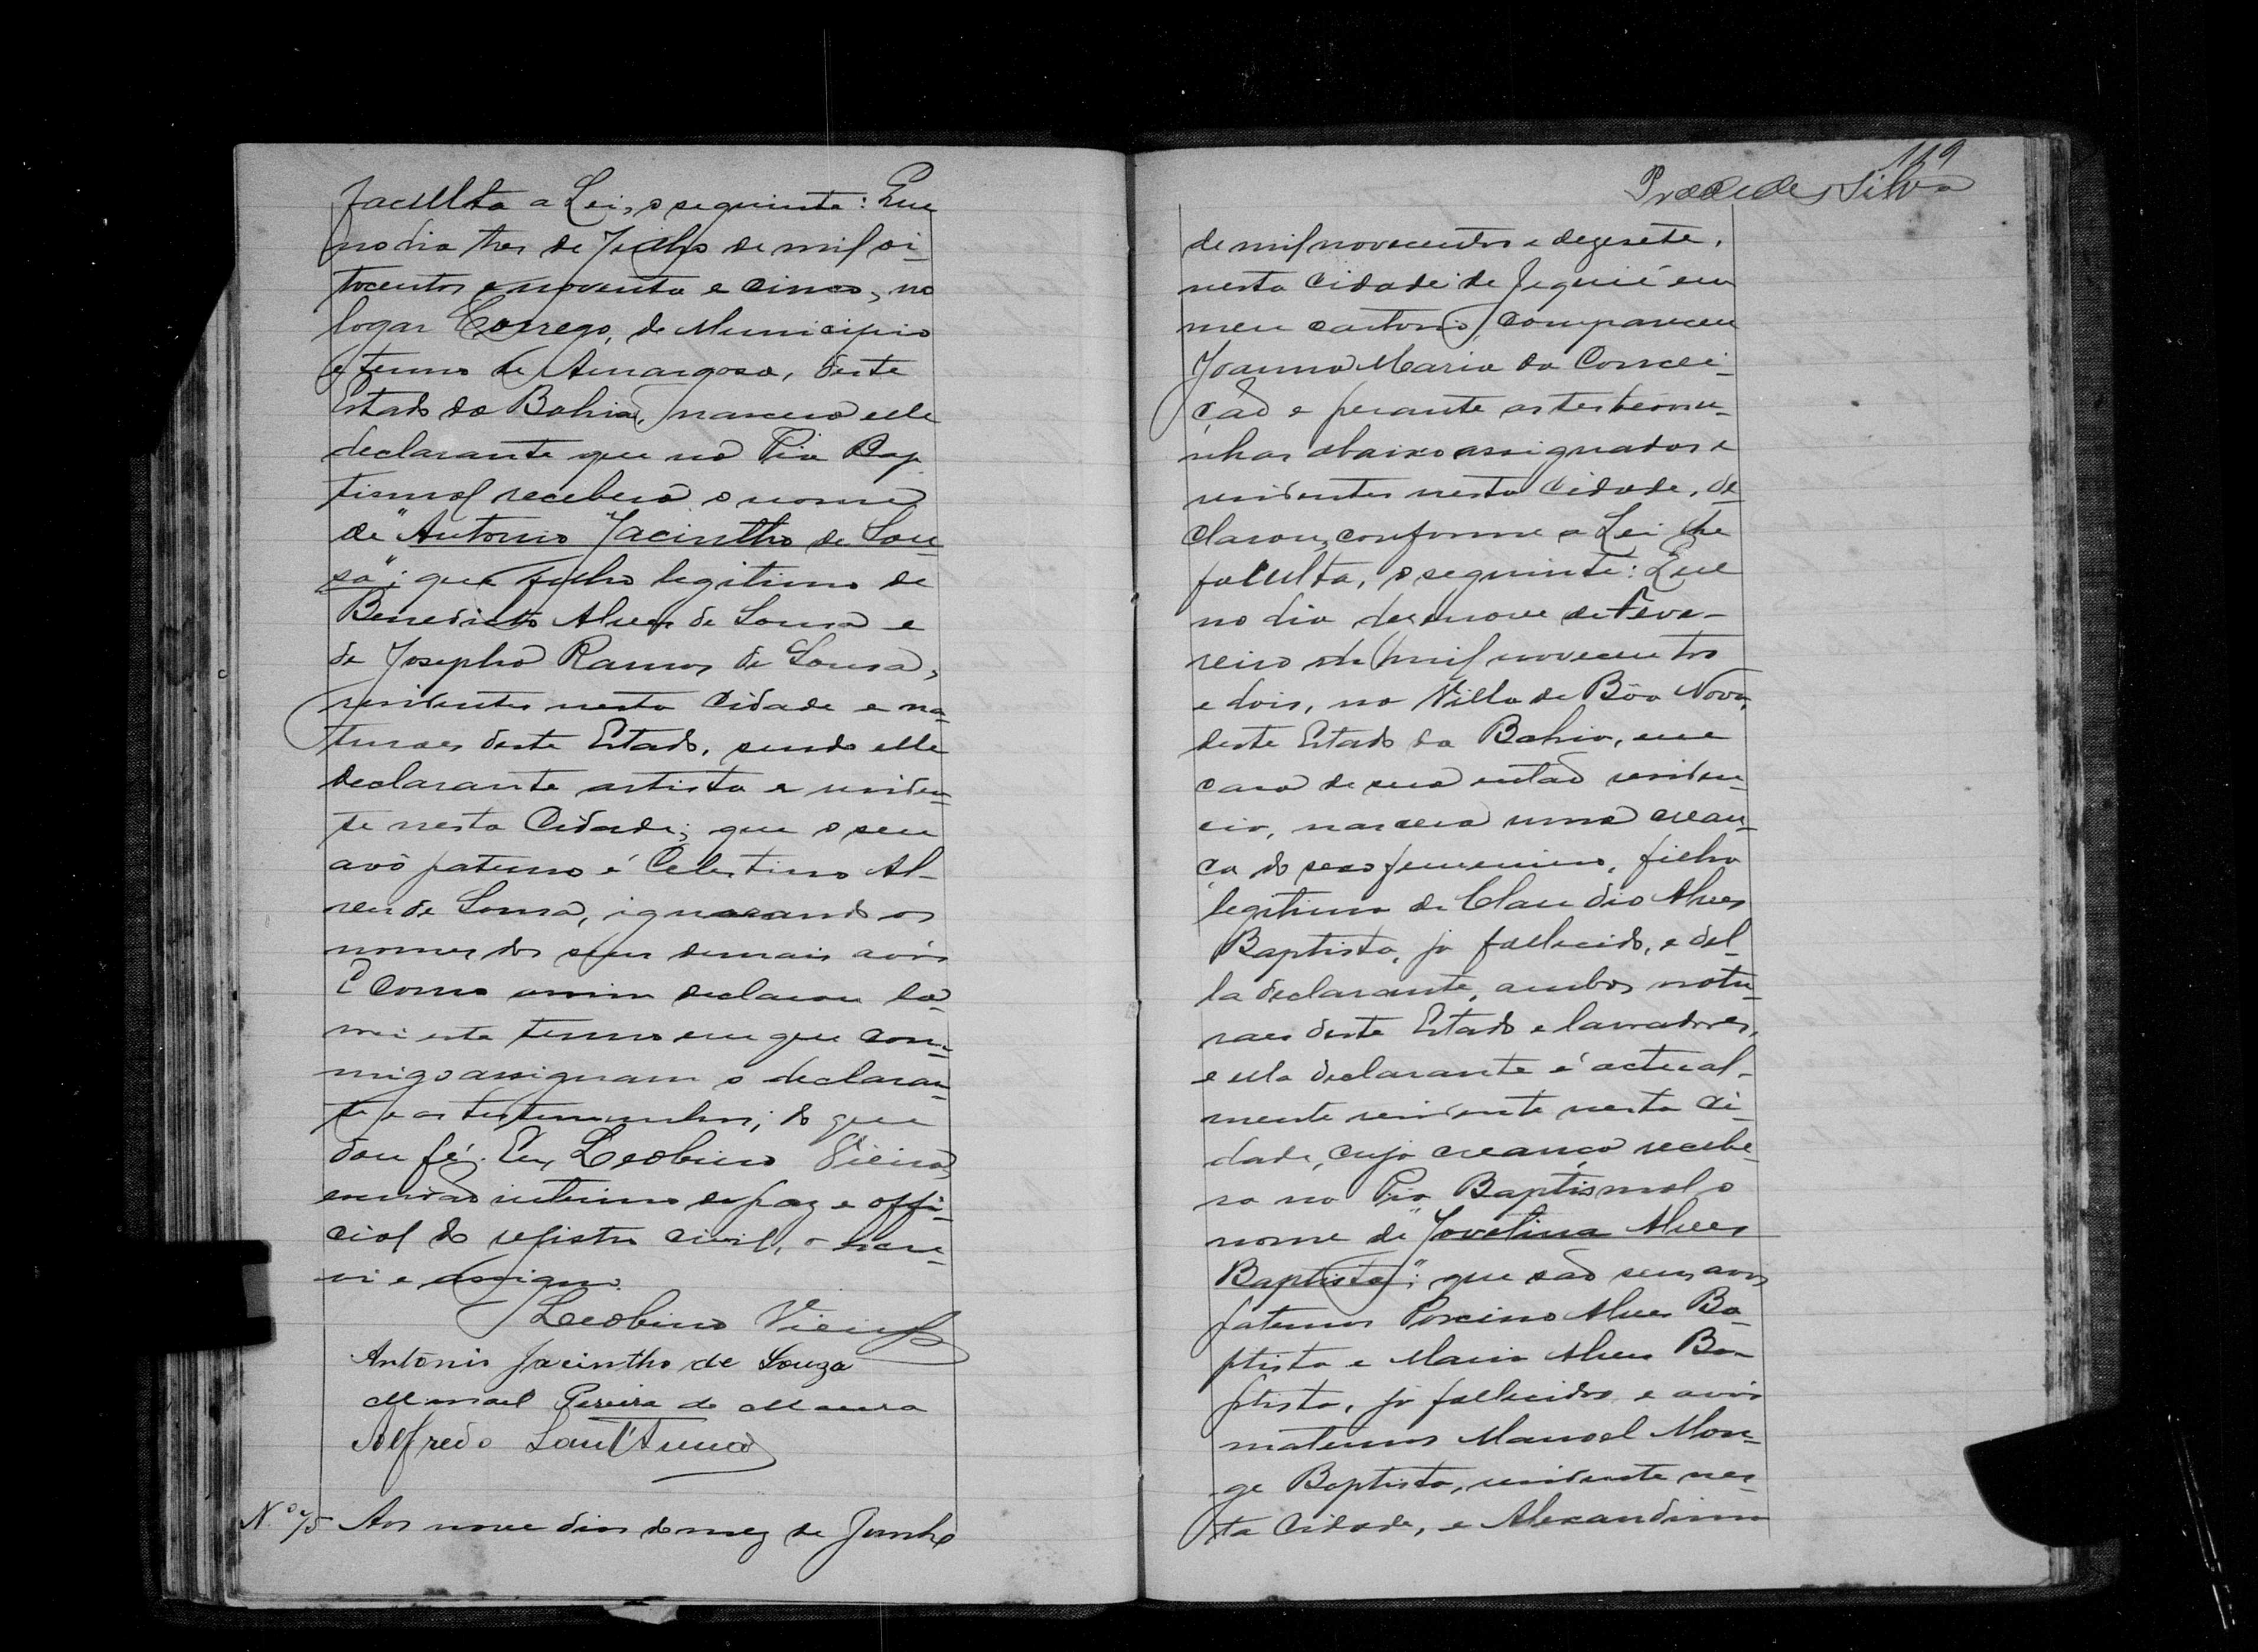 faculta a Lei, o seguinte: Que
no dia tres de Julho de mil oi-
tocentos e noventa e cinco, no
logar Corrego, do Municipio
e termo de Amargosa, deste
Estado da Bahia, nascera elle
declarante que na Pia Bap
tismal recebera o nome
de "Antonio Jacintho de Sou-
sa"; que é filho legitimo de
Benedicto Alves de Sousa e
de Josepha Ramos de Sousa,
residentes nesta Cidade e na-
turaes deste Estado, sendo elle
declarante artista e residen-
te nesta Cidade; que o seu
avô paterno é Celestino Al-
ves de Sousa, ignorando os
nomes dos seus demais avós
E como assim declarou la-
vrei este termo em que com-
migo assignam o declaran-
te e as testemunhas; do que
dou fé. Eu, Leobino Vieira,
escrivão interino de paz e offi-
cial do registro civil, o escre-
vi e assigno.
Leobino Vieira
Antonio Jacintho de Souza
Manoel Pereira de Moura
Alfredo Sant'Anna
Nº 75 Aos nove dias do mez de Junho
119
Silva
de mil novecentos e dezesete,
nesta Cidade de Jequié em
meu cartorio, compareceu
Joanna Maria da Concei-
ção e perante as testemu-
nhas abaixo assignadas e
residentes nesta Cidade, de-
clarou, conforme a Lei lhe
faculta, o seguinte: Que
no dia desenove de Feve-
reiro de mil novecentos
e dois, na Villa de Bôa Nova,
deste Estado da Bahia, em
casa de sua então residen-
cia, nascera uma crean-
ça do sexo femenino, filha
legitima de Claudio Alves
Baptista, já fallecido, e del-
la declarante, ambos natu-
raes deste Estado e lavradores,
e ella declarante é actual-
mente residente nesta Ci-
dade, cuja creança recebe-
ra na Pia Baptismal o
nome de "Jovelina Alves
Baptista"; que são seus avós
paternos Porcino Alves Ba-
ptista e Maria Alves Ba-
ptista, já fallecidos e avós
maternos Manoel Mon-
ge Baptista, residente nes-
ta Cidade, e Alexandrina